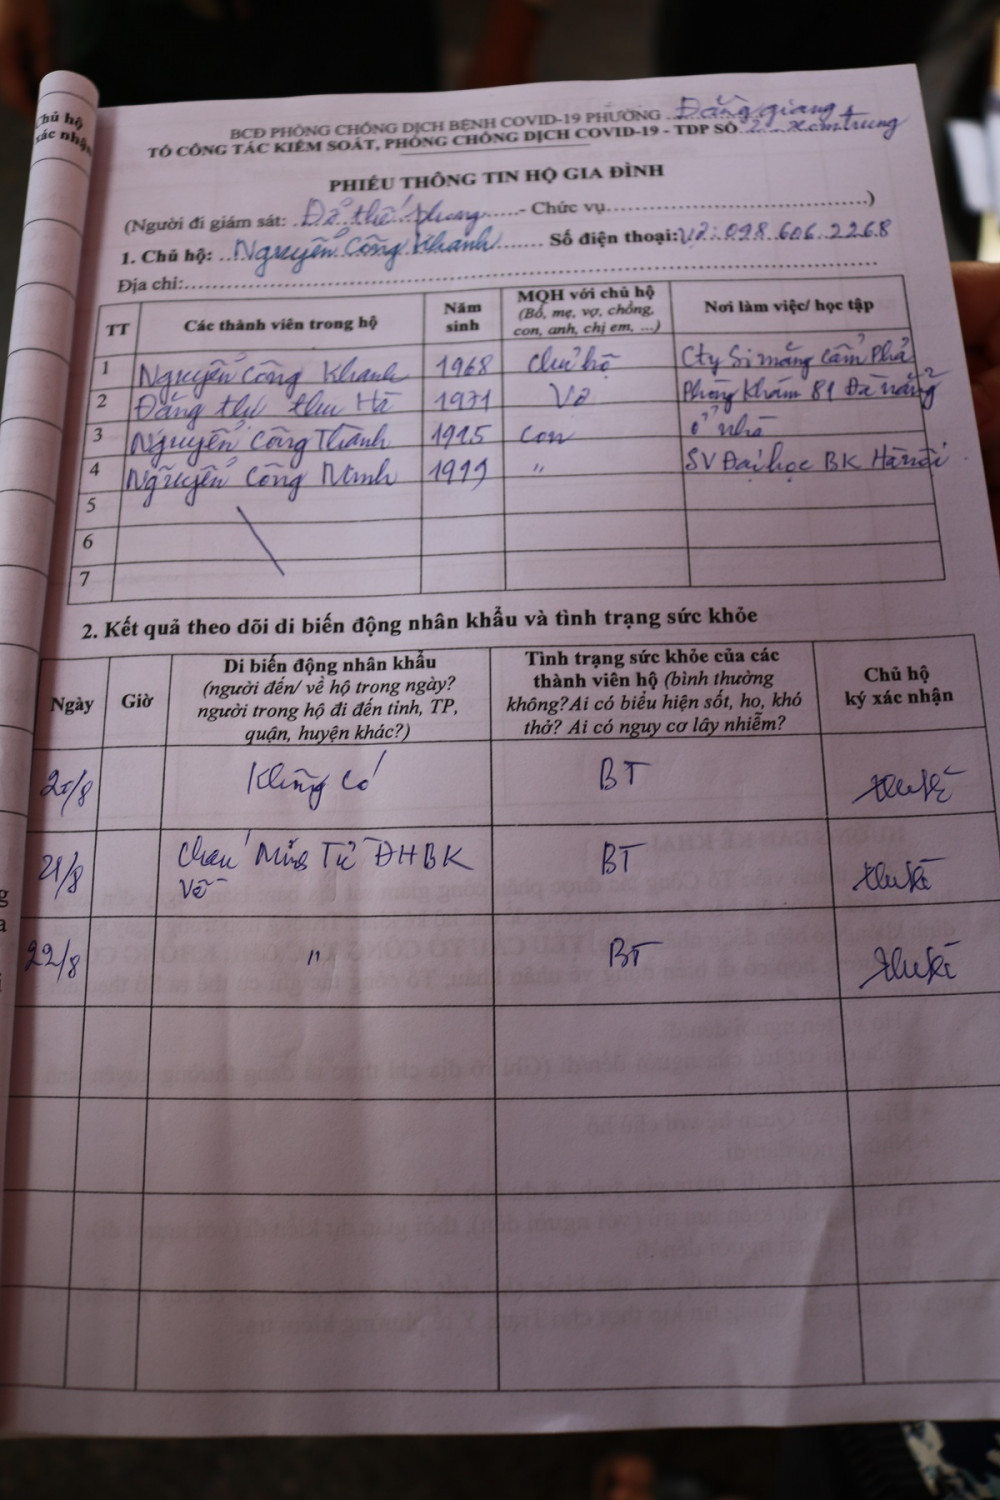 Chủ hộ
xác nhận
BCĐ PHÒNG CHỐNG DỊCH BỆNH COVID-19 PHƯỜNG Đằng giang
TỔ CÔNG TÁC KIỂM SOÁT, PHÒNG CHỐNG DỊCH COVID-19 - TDP SỐ 2 trung
PHIẾU THÔNG TIN HỘ GIA ĐÌNH
(Người đi giám sát: Đỗ thế phung - Chức vụ)
1. Chủ hộ: Nguyễn Công Khanh Số điện thoại: Vợ: 098.606.2268
Địa chỉ:
TT Các thành viên trong hộ Năm sinh MQH với chủ hộ (Bố, mẹ, vợ, chồng, con, anh, chị em, ...) Nơi làm việc/ học tập
1 Nguyễn Công Khanh 1968 Chủ hộ Cty Si măng Cẩm Phả
2 Đặng thị thu Hà 1971 Vợ Phòng Khám 81 Đà nẵng
3 Nguyễn Công Thành 1995 Con ở nhà
4 Nguyễn Công Minh 1999 " SV Đại học BK Hà nội
5
6
7
2. Kết quả theo dõi di biến động nhân khẩu và tình trạng sức khỏe
Ngày Giờ Di biến động nhân khẩu (người đến/ về hộ trong ngày? người trong hộ đi đến tỉnh, TP, quận, huyện khác?) Tình trạng sức khỏe của các thành viên hộ (bình thường không? Ai có biểu hiện sốt, ho, khó thở? Ai có nguy cơ lây nhiễm?) Chủ hộ ký xác nhận
20/8 Không có BT
21/8 Cháu Minh Từ ĐHBK Về BT
22/8 " BT